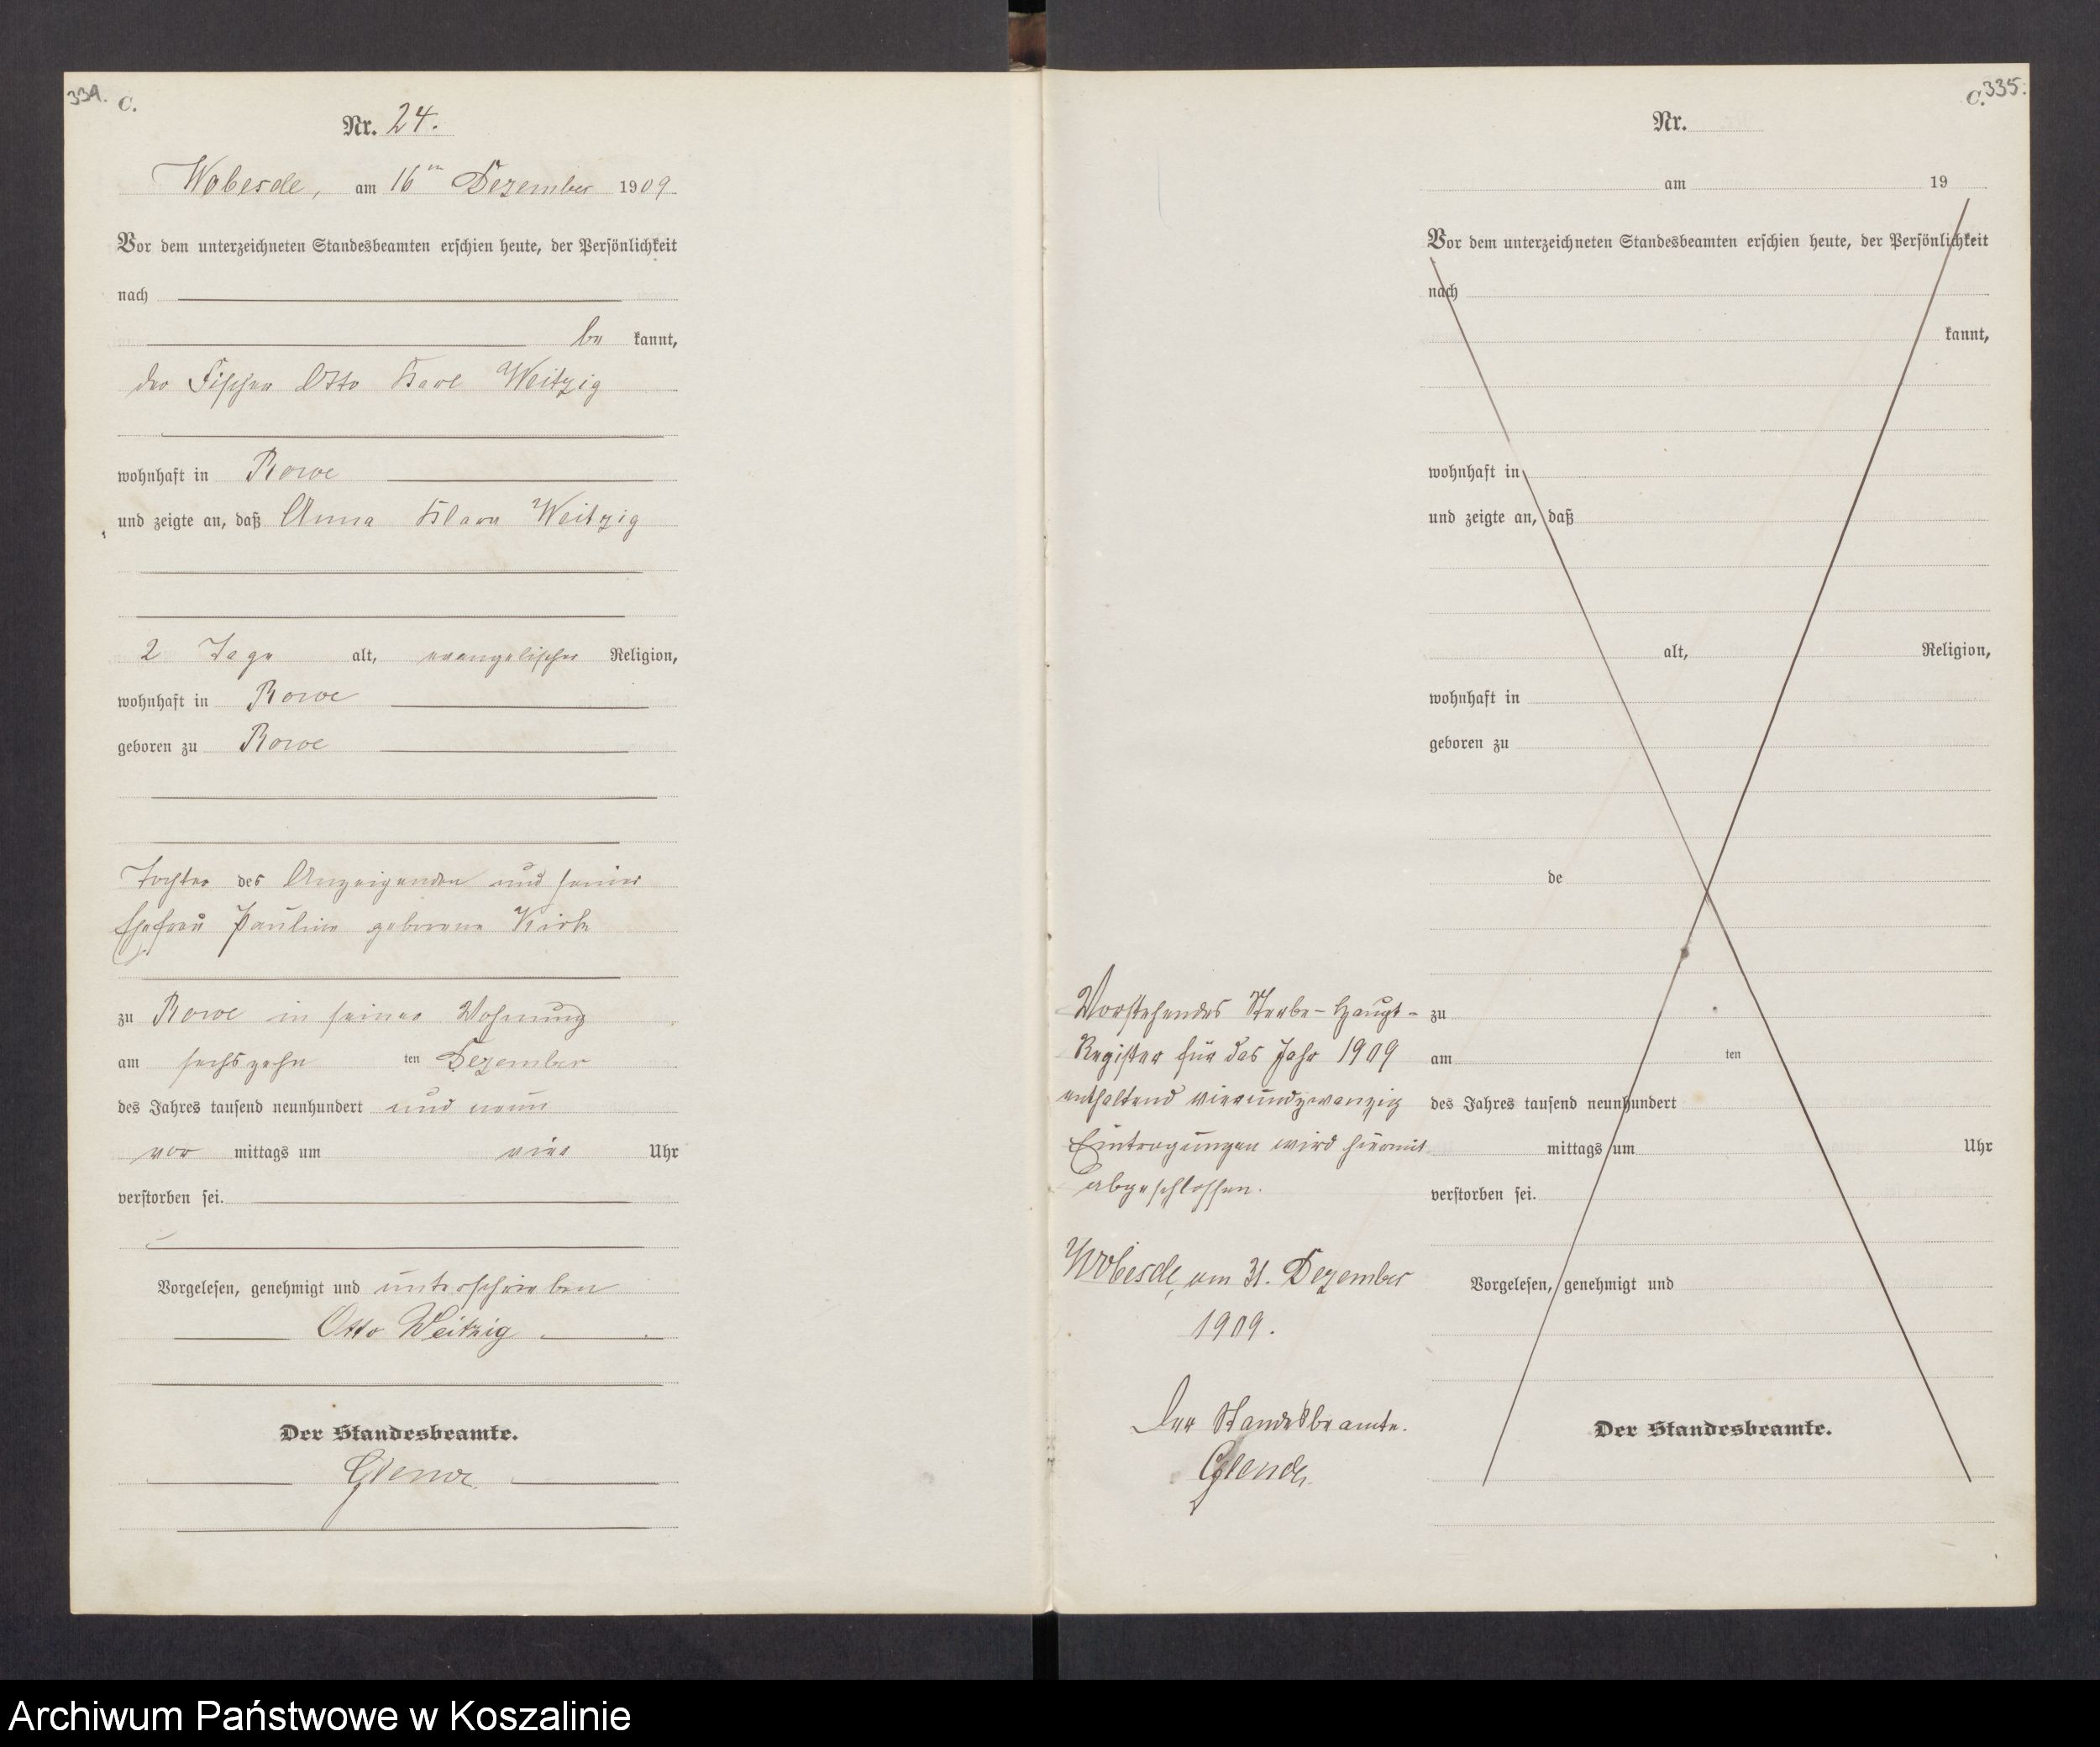 334.
C.
Nr. 24.
Wobesde, am 16ten Dezember 1909
Vor dem unterzeichneten Standesbeamten erschien heute, der Persönlichkeit
nach
be kannt,
der Fischer Otto Karl Weitzig
wohnhaft in Rowe
und zeigte an, daß Anna Klara Weitzig
2 Tage alt, evangelischer Religion,
wohnhaft in Rowe
geboren zu Rowe
Tochter des Anzeigenden und seiner
Ehefrau Pauline geborene Kirk
zu Rowe in seiner Wohnung
am sechszehn ten Dezember
des Jahres tausend neunhundert und neun
vor mittags um vier Uhr
verstorben sei.
Vorgelesen, genehmigt und unterschrieben
Otto Weitzig
Der Standesbeamte.
C.
335.
Nr.
am 19
Vor dem unterzeichneten Standesbeamten erschien heute, der Persönlichkeit
nach
kannt,
wohnhaft in
und zeigte an, daß
alt, Religion,
wohnhaft in
geboren zu
de
zu
am ten
des Jahres tausend neunhundert
mittags um Uhr
verstorben sei.
Vorgelesen, genehmigt und
Der Standesbeamte.
Vorstehendes Sterbe-Haupt-
Register für das Jahr 1909
enthaltend vierundzwanzig
Eintragungen wird hiermit
abgeschlossen.
Wobesde, am 31. Dezember
1909.
Der Standesbeamte.
Archiwum Państwowe w Koszalinie